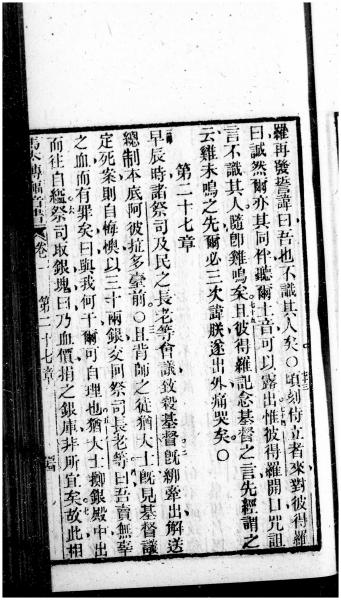 羅再發誓諱曰吾也不識其人矣○頃刻侍立者來對彼得羅
曰誠然爾亦其同伴聽爾土音可以露出惟彼得羅開口咒詛
言不識其人隨卽雞鳴矣且彼得羅記念基督之言先經謂之
云雞未鳴之先爾必三次諱朕遂出外痛哭矣○
第二十七章
早辰時諸祭司及民之長老等會議致殺基督旣綁牽出解送
總制本底阿彼拉多臺前○且背師之徒猶大士旣見基督議
定死案則自悔懊以三十兩銀交囘祭司長老等曰吾賣無辜
之血而有罪矣曰與我何干爾可自理也猶大士擲銀殿中出
而往自縊祭司取銀塊曰乃血價捐之銀庫非所宜矣故此相
卷一 第二十七章